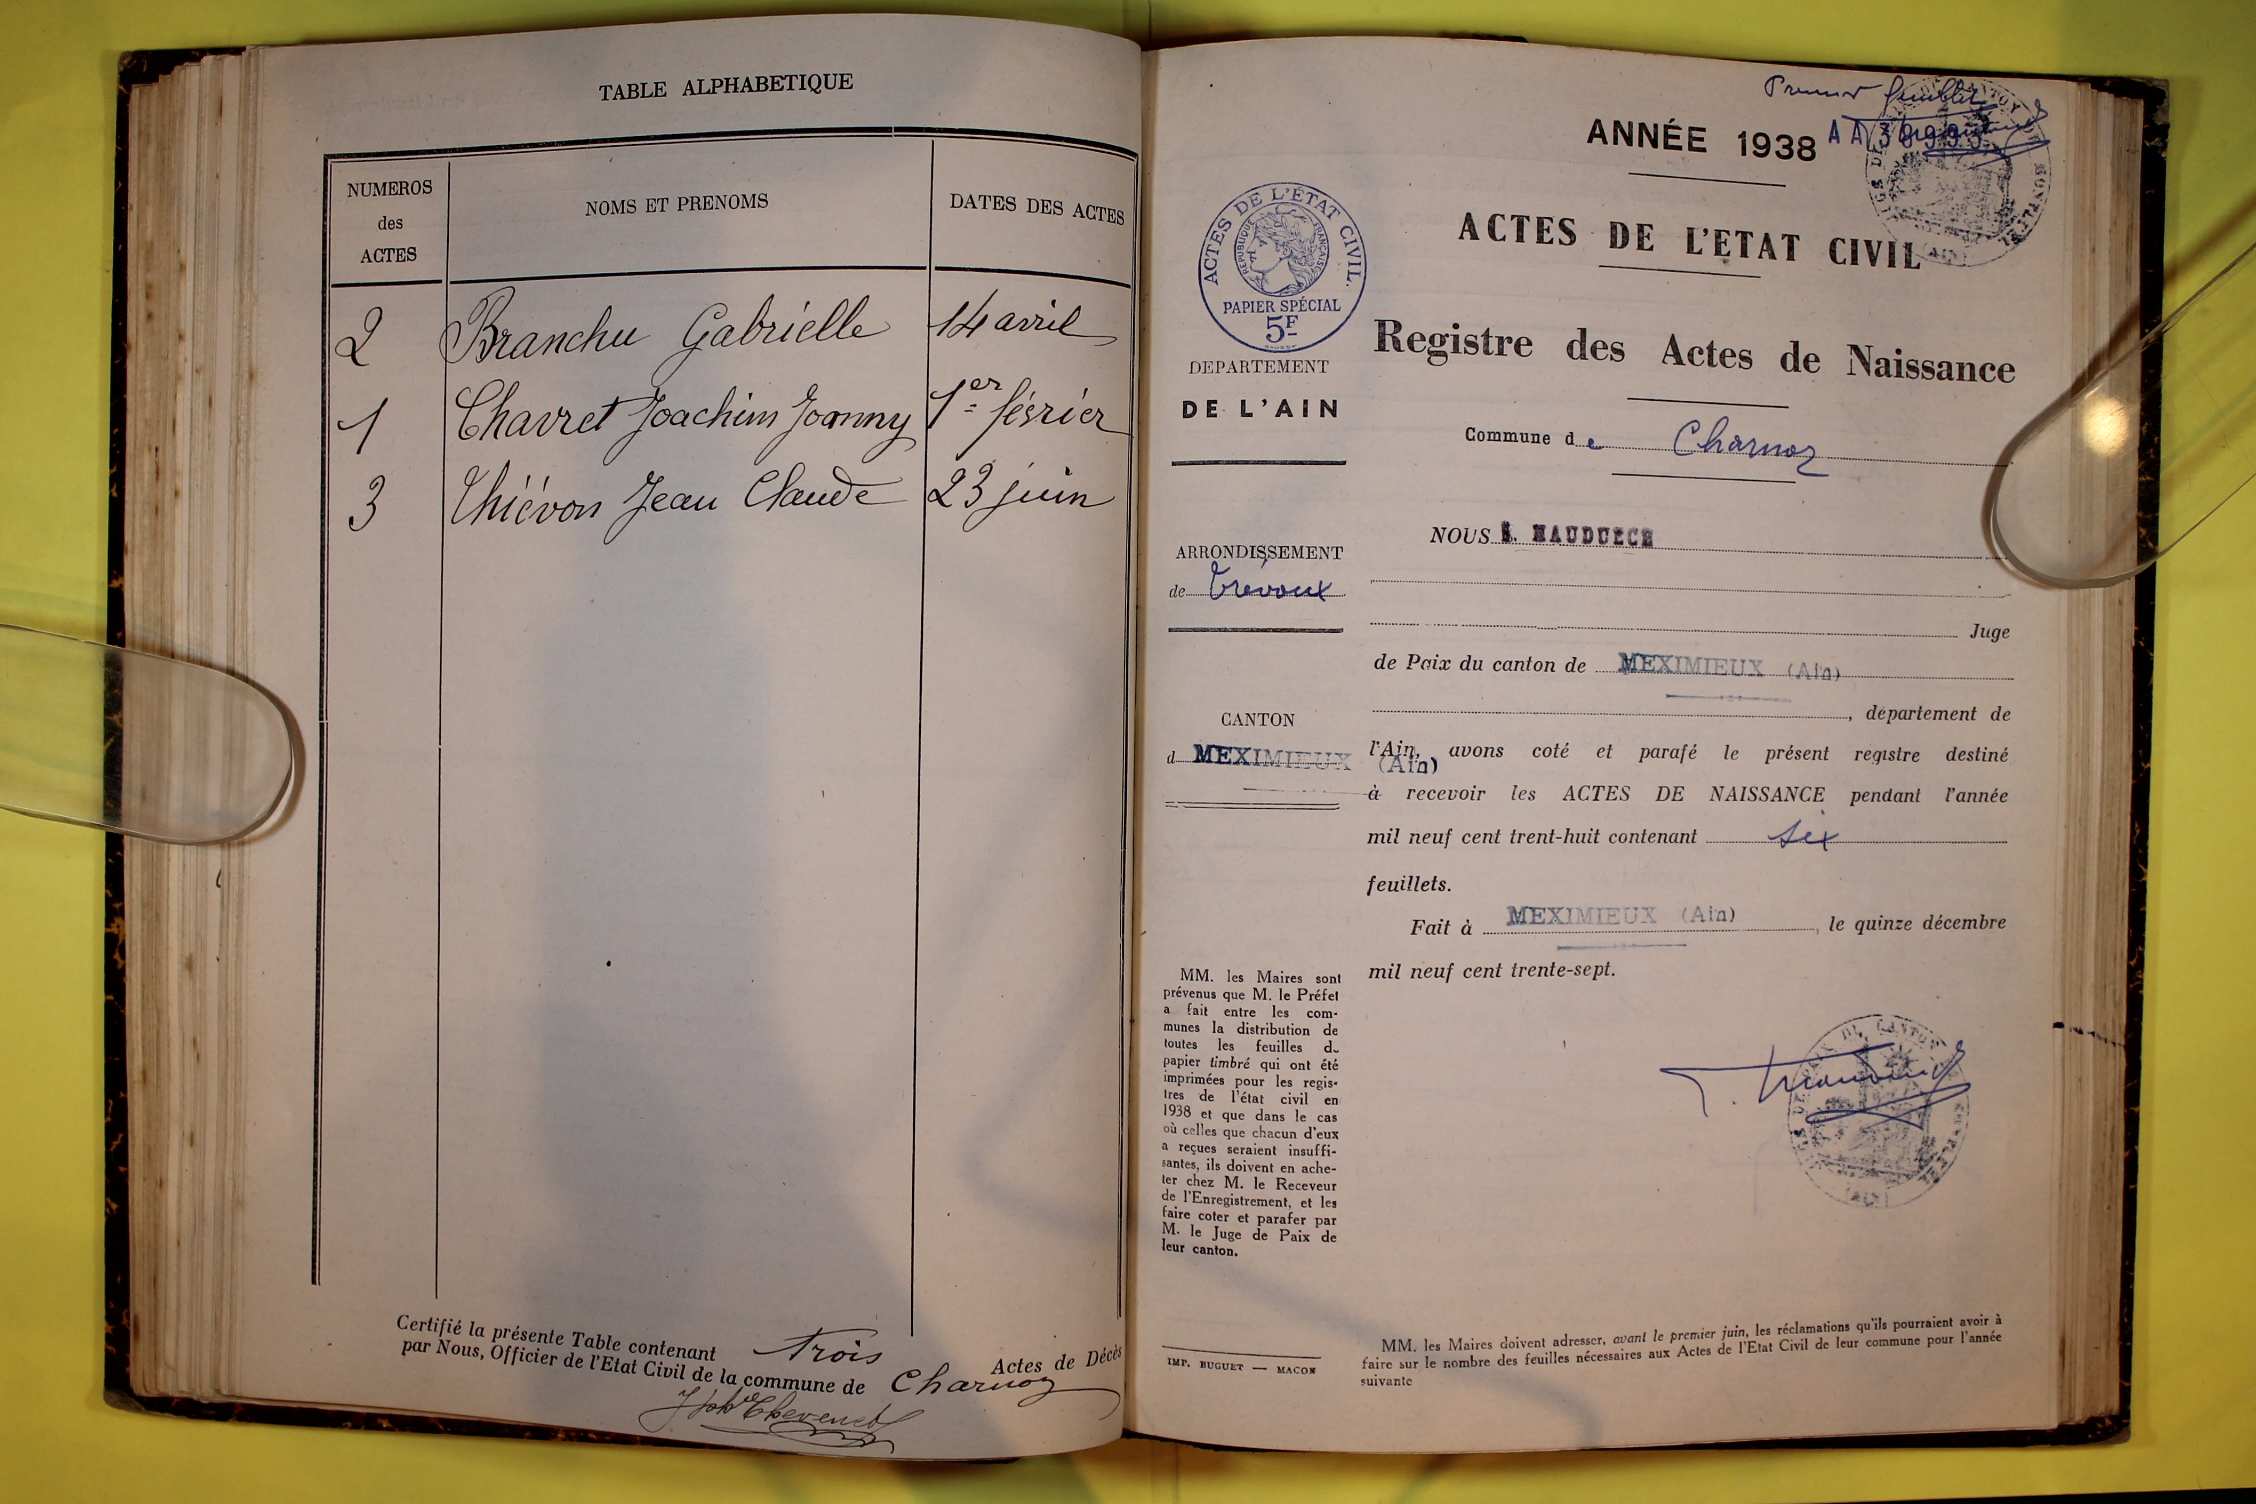 TABLE ALPHABETIQUE
NUMEROS
des
ACTES
NOMS ET PRENOMS
DATES DES ACTES
2 Branchu Gabrielle 14 avril
1 Charret Joachim Joanny 1er février
3 Thiévon Jean Claude 23 juin
Certifié la présente Table contenant trois Actes de Décès
par Nous, Officier de l'Etat Civil de la commune de Charnoz
Premier feuillet
ANNÉE 1938
ACTES DE L'ÉTAT CIVIL.
RÉPUBLIQUE FRANÇAISE
PAPIER SPÉCIAL
5F
DEPARTEMENT
DE L'AIN
ARRONDISSEMENT
de Trévoux
CANTON
d MEXIMIEUX (Ain)
MM. les Maires sont
prévenus que M. le Préfet
a fait entre les com-
munes la distribution de
toutes les feuilles de
papier timbré qui ont été
imprimées pour les regis-
tres de l'état civil en
1938 et que dans le cas
où celles que chacun d'eux
a reçues seraient insuffi-
santes, ils doivent en ache-
ter chez M. le Receveur
de l'Enregistrement, et les
faire coter et parafer par
M. le Juge de Paix de
leur canton.
IMP. BUGUET — MACON
ACTES DE L'ETAT CIVIL
Registre des Actes de Naissance
Commune de Charnoz
NOUS
Juge
de Paix du canton de MEXIMIEUX (Ain)
, département de
l'Ain, avons coté et parafé le présent registre destiné
à recevoir les ACTES DE NAISSANCE pendant l'année
mil neuf cent trent-huit contenant six
feuillets.
Fait à MEXIMIEUX (Ain), le quinze décembre
mil neuf cent trente-sept.
MM. les Maires doivent adresser, avant le premier juin, les réclamations qu'ils pourraient avoir à
faire sur le nombre des feuilles nécessaires aux Actes de l'Etat Civil de leur commune pour l'année
suivante